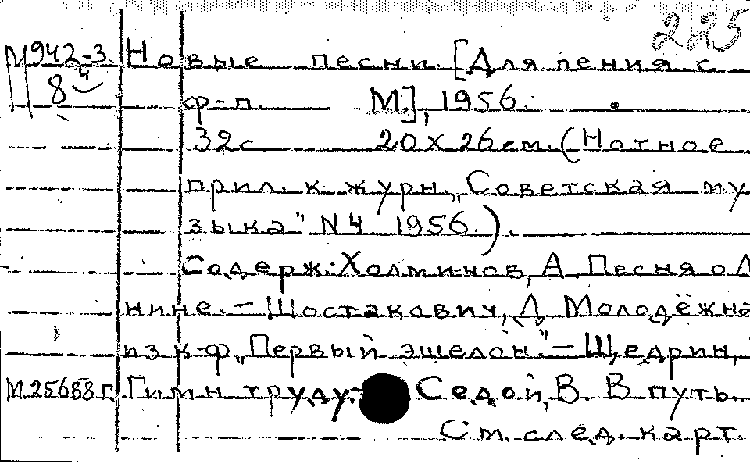 225
М942-3 Новые песни. [Для пения с
8 4 ф-п. М], 1956.
32с 20 х 26см. (Нотное
прил. к журн. „Советская му
зыка" N4 1956.).
Содерж: Холминов, А. Песня о Л
нине. — Шостакович, Д. Молодёжна
из к-ф „Первый эшелон." — Щедрин,
М25688г. Гимн труду. — Седой, В. В путь.
См. след. карт.